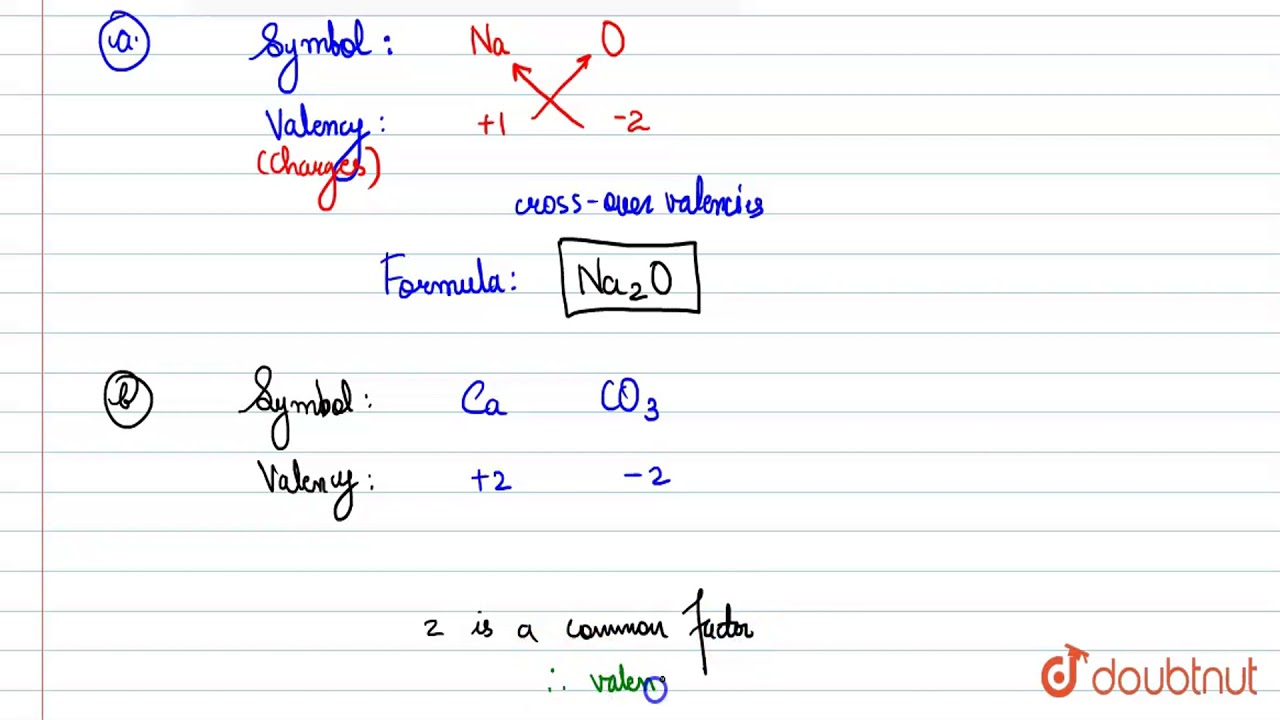 a. Symbol: Na O
Valency: +1 -2
(Charges)
cross-over valencies
Formula: Na₂O
b Symbol: Ca CO₃
Valency: +2 -2
2 is a common factor
∴ valen
doubtnut